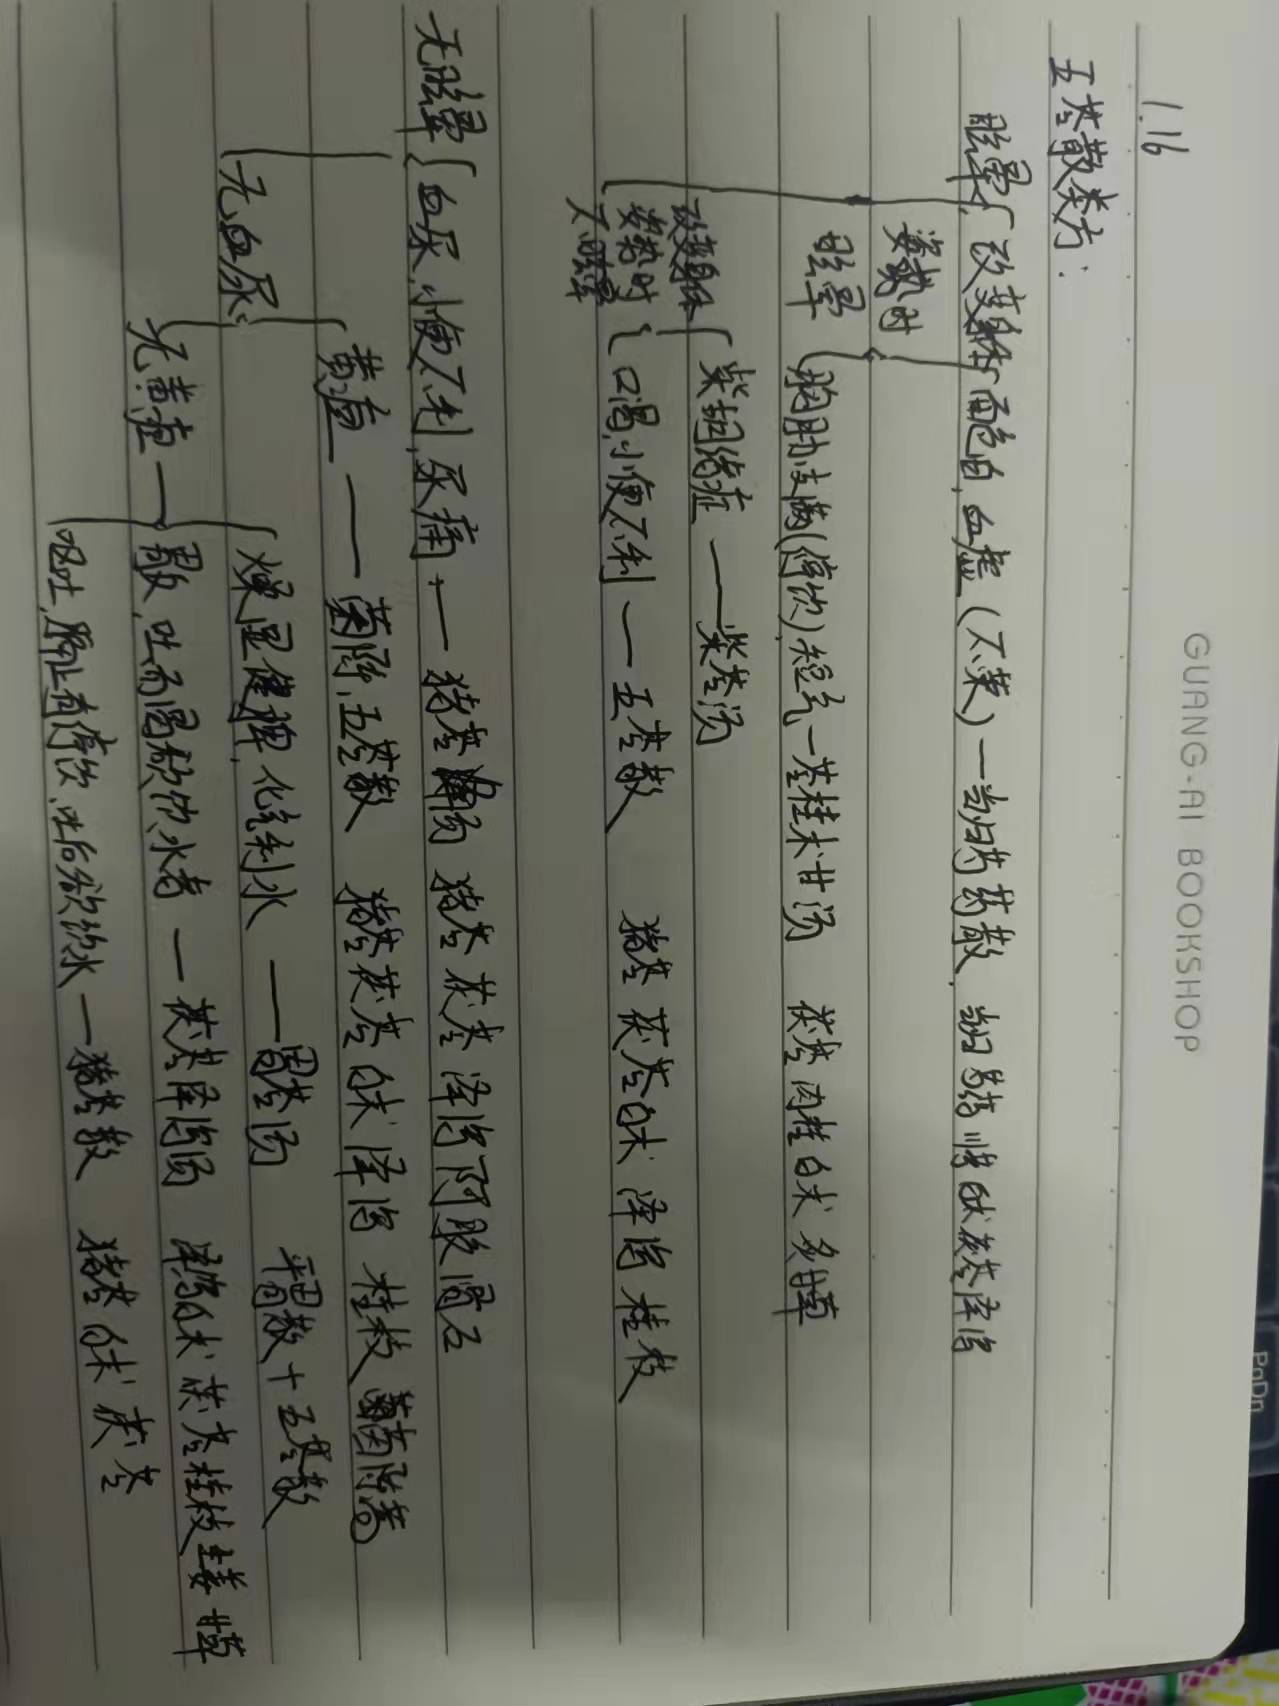 GUANG·AI BOOKSHOP
1.16
五苓散类方:
眩晕 改变身体 面色白,血虚(不荣)—当归芍药散, 当归 芍药 川芎 白术 茯苓 泽泻
姿势时
眩晕 胸胁支满(停饮)短气—苓桂术甘汤 茯苓 肉桂 白术 炙甘草
改变身体 柴胡诸症 — 柴苓汤
姿势时
不眩晕 口渴,小便不利 — 五苓散 猪苓 茯苓 白术 泽泻 桂枝
无眩晕 血尿,小便不利,尿痛 — 猪苓汤 猪苓 茯苓 泽泻 阿胶 滑石
黄疸 — 茵陈五苓散 猪苓 茯苓 白术 泽泻 桂枝 茵陈蒿
无血尿 燥湿健脾,化气利水 — 胃苓汤 平胃散+五苓散
无黄疸 — 吐而渴欲饮水者 — 茯苓泽泻汤 泽泻 白术 茯苓 桂枝 生姜 甘草
呕吐,膈上有停饮,吐后欲饮水—猪苓散 猪苓 白术 茯苓
PgDn